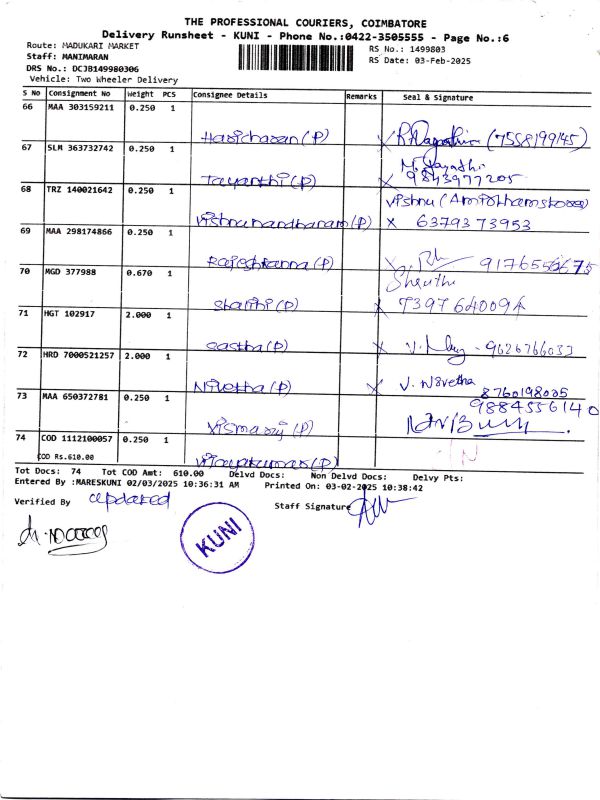 THE PROFESSIONAL COURIERS, COIMBATORE
Delivery Runsheet - KUNI - Phone No.:0422-3505555 - Page No.:6
Route: MADUKARI MARKET
RS No.: 1499803
Staff: MANIMARAN
RS Date: 03-Feb-2025
DRS No.: DCJB149980306
Vehicle: Two Wheeler Delivery
S No Consignment No Weight PCS Consignee Details Remarks Seal & Signature
66 MAA 303159211 0.250 1
Haricharan (P) (7558199145)
67 SLM 363732742 0.250 1
M. Jayathi
Jayanthi (P) x 9843977205
68 TRZ 140021642 0.250 1
Vishnu
Vishnunandhanam (P) x 6379373953
69 MAA 298174866 0.250 1
Rajeshkanna (P)
70 MGD 377988 0.670 1
Shruthi
Shanthi (P) x
71 HGT 102917 2.000 1
Sastha (P) x - 9626766033
72 HRD 7000521257 2.000 1
V. Nivetha
Nivetha (P) x 8760198005
73 MAA 650372781 0.250 1
9884556140
74 COD 1112100057 0.250 1
COD Rs.610.00
Vijayakumar (P)
Tot Docs: 74 Tot COD Amt: 610.00 Delvd Docs: Non Delvd Docs: Delvy Pts:
Entered By :MARESKUNI 02/03/2025 10:36:31 AM Printed On: 03-02-2025 10:38:42
Verified By updated
Staff Signature
KUNI